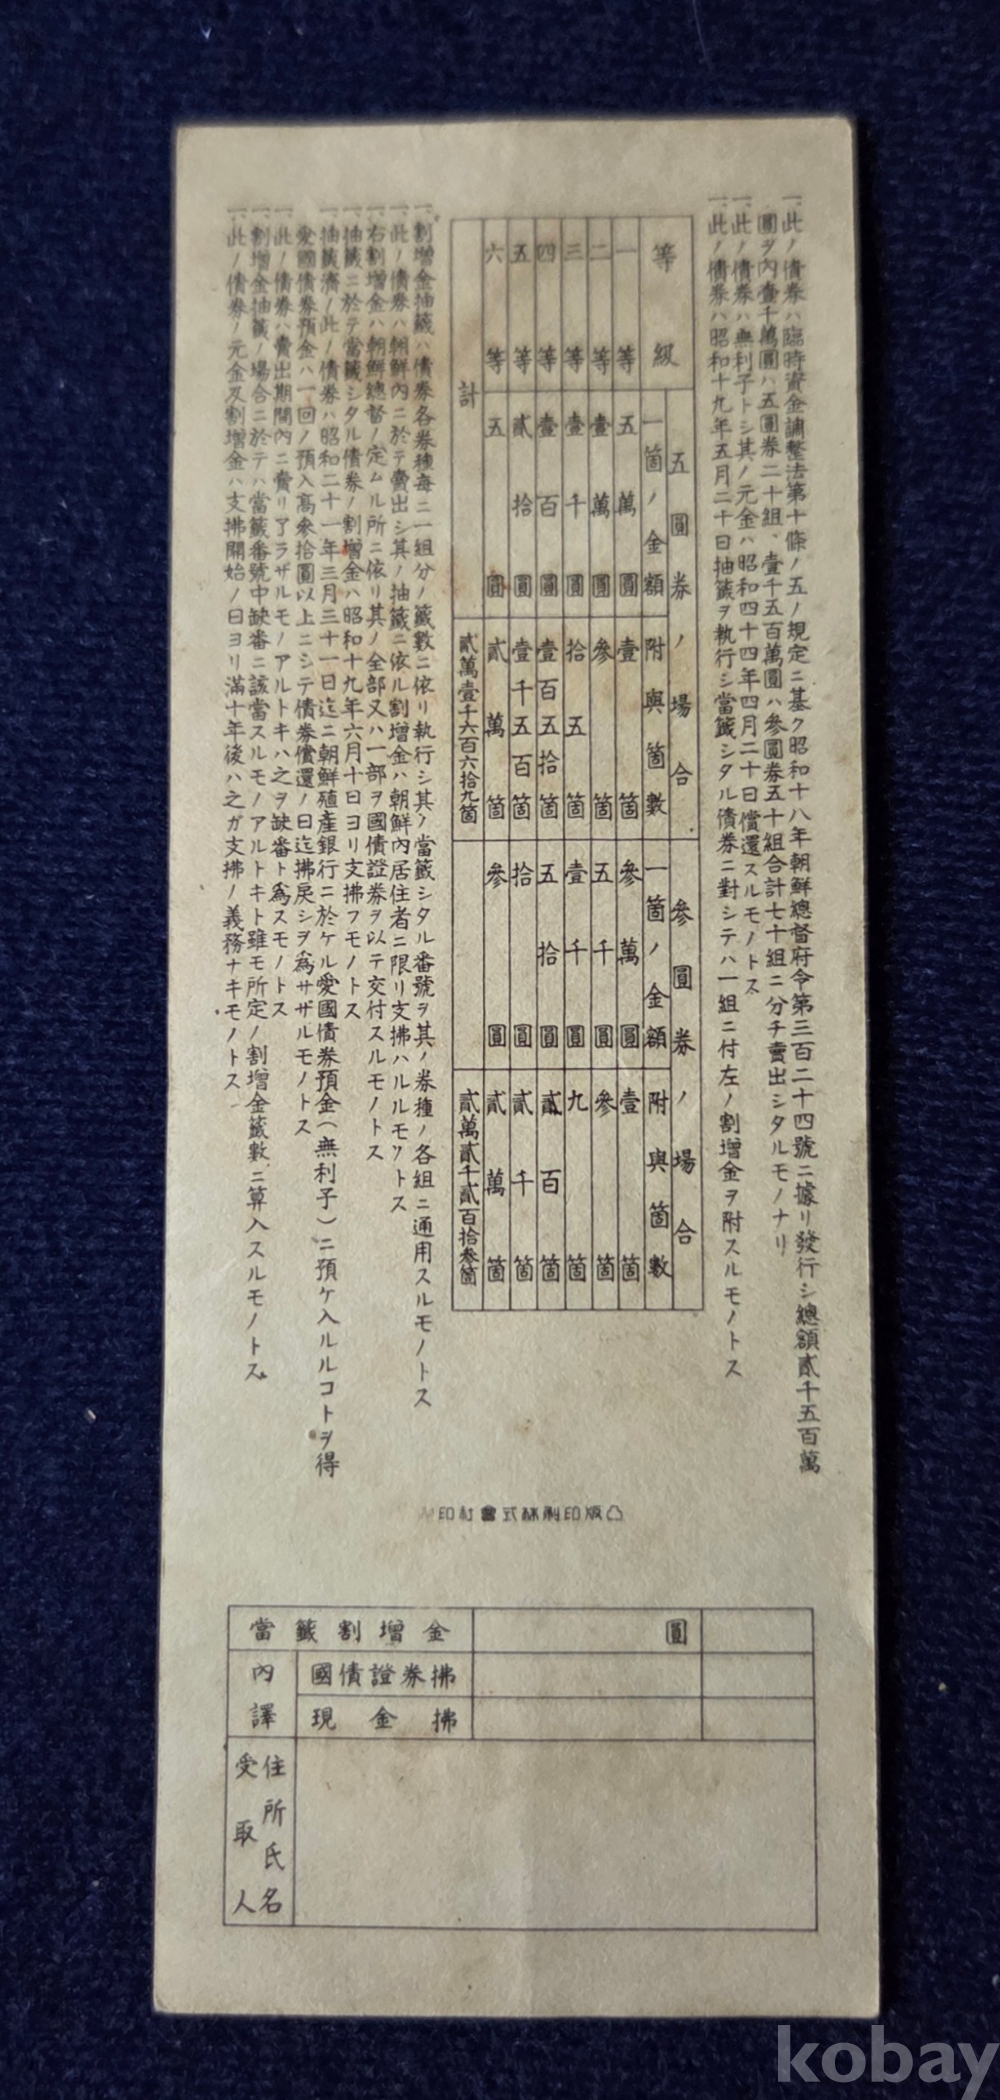 一、此ノ債券ハ臨時資金調整法第十條ノ五ノ規定ニ基ク昭和十八年朝鮮總督府令第三百二十四號ニ據リ發行シ總額貳千五百萬
圓ヲ內壹千萬圓ハ五圓券二十組、壹千五百萬圓ハ參圓券五十組合計七十組ニ分チ賣出シタルモノナリ
一、此ノ債券ハ無利子トシ其ノ元金ハ昭和四十四年四月二十日償還スルモノトス
一、此ノ債券ハ昭和十九年五月二十日抽籤ヲ執行シ當籤シタル債券ニ對シテハ一組ニ付左ノ割增金ヲ附スルモノトス
等級 五圓券ノ場合 參圓券ノ場合
一箇ノ金額 附與箇數 一箇ノ金額 附與箇數
一等 五萬圓 壹箇 參萬圓 壹箇
二等 壹萬圓 參箇 五千圓 參箇
三等 壹千圓 拾五箇 壹千圓 九箇
四等 壹百圓 壹百五拾箇 五拾圓 貳百箇
五等 貳拾圓 壹千五百箇 拾圓 貳千箇
六等 五圓 貳萬箇 參圓 貳萬箇
計 貳萬壹千六百六拾九箇 貳萬貳千貳百拾參箇
一、割增金抽籤ハ債券各券種每ニ一組分ノ籤數ニ依リ執行シ其ノ當籤シタル番號ヲ其ノ券種ノ各組ニ通用スルモノトス
一、此ノ債券ハ朝鮮內ニ於テ賣出シ其ノ抽籤ニ依ル割增金ハ朝鮮內居住者ニ限リ支拂ハルルモノトス
一、右割增金ハ朝鮮總督ノ定ムル所ニ依リ其ノ全部又ハ一部ヲ國債證券ヲ以テ交付スルモノトス
一、抽籤ニ於テ當籤シタル債券ノ割增金ハ昭和十九年六月十日ヨリ支拂フモノトス
一、抽籤濟ノ此ノ債券ハ昭和二十一年三月三十一日迄ニ朝鮮殖產銀行ニ於ケル愛國債券預金(無利子)ニ預ケ入ルルコトヲ得
愛國債券預金ハ一回ノ預入高參拾圓以上ニシテ債券償還ノ日迄拂戾シヲ爲サザルモノトス
一、此ノ債券ハ賣出期間內ニ賣リ了ラザルモノアルトキハ之ヲ缺番ト爲スモノトス
一、割增金抽籤ノ場合ニ於テハ當籤番號中缺番ニ該當スルモノアルトキト雖モ所定ノ割增金籤數ニ算入スルモノトス
一、此ノ債券ノ元金及割增金ハ支拂開始ノ日ヨリ滿十年後ハ之ガ支拂ノ義務ナキモノトス
印社會式株刷印版凸
當籤割增金 圓
內譯 國債證券拂
現金拂
受取人 住所氏名
kobay